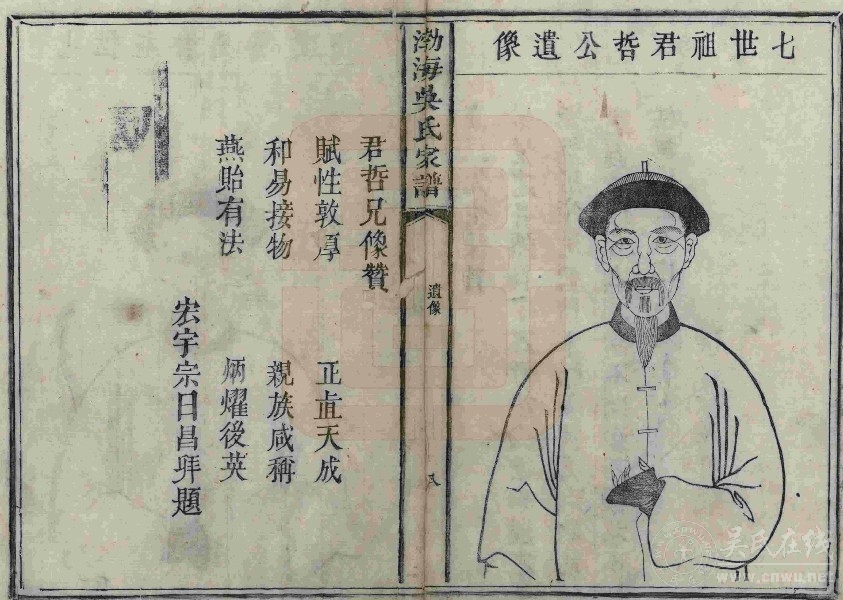 七世祖君哲公遺像
渤海吳氏家譜
遺像
君哲兄像贊
賦性敦厚 正直天成
和易接物 親族咸稱
燕貽有法 炳燿後英
宏宇宗日昌拜題
吴氏在线
www.cnwu.net